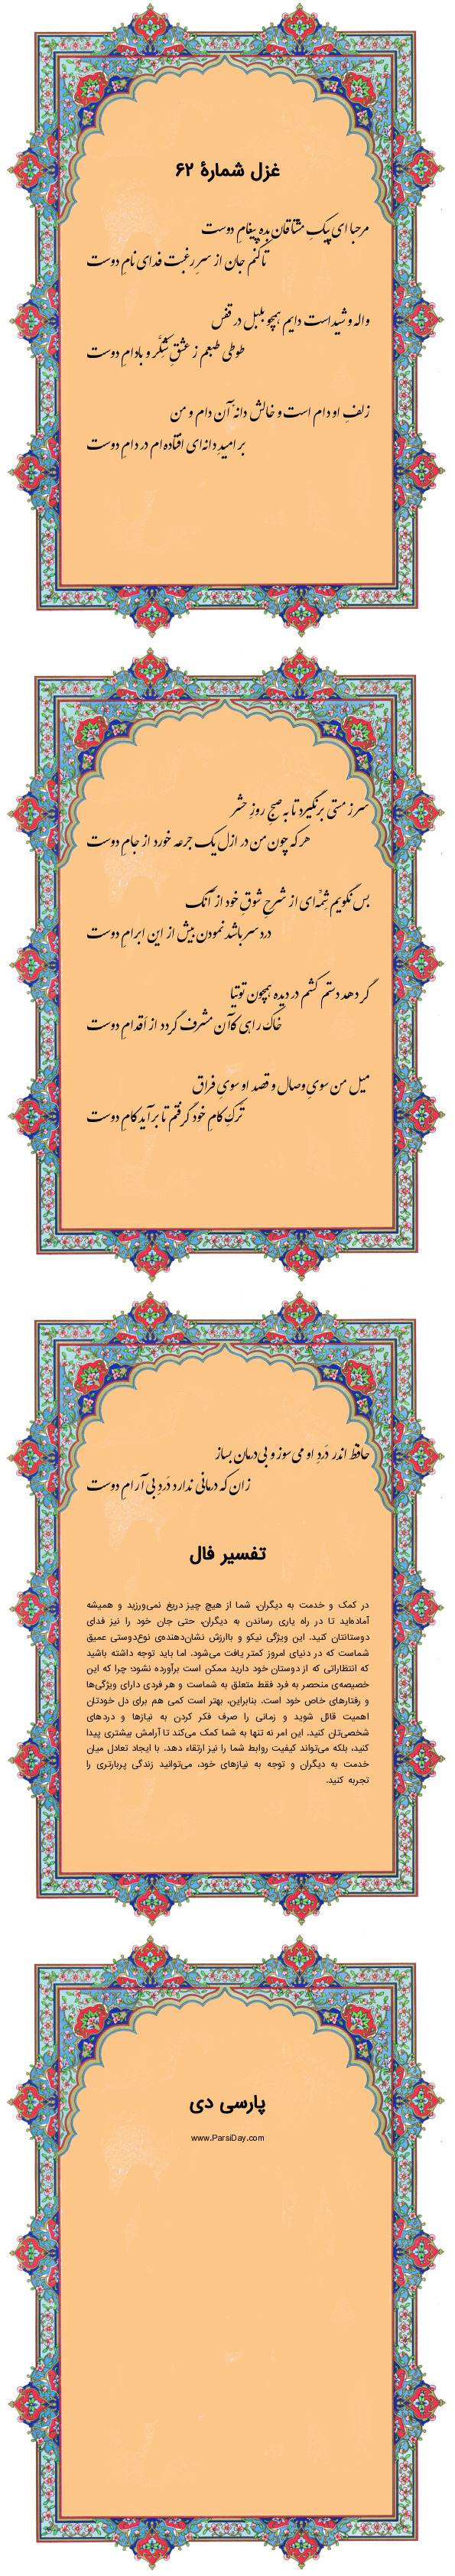 غزل شمارهٔ ۶۲
مرحبا ای پیکِ مشتاقان بده پیغامِ دوست
تا کنم جان از سرِ رغبت فدای نامِ دوست
واله و شیداست دایم همچو بلبل در قفس
طوطی طبعم ز عشقِ شِکَّر و بادامِ دوست
زلفِ او دام است و خالش دانهٔ آن دام و من
بر امیدِ دانه‌ای افتاده‌ام در دامِ دوست
سر ز مستی برنگیرد تا به صبحِ روزِ حشر
هر که چون من در ازل یک جرعه خورد از جامِ دوست
بس نگویم شِمِّه‌ای از شرحِ شوقِ خود از آنک
دردسر باشد نمودن بیش از این ابرامِ دوست
گر دهد دستم کشم در دیده همچون توتیا
خاک راهی کآن مشرف گردد از اَقدامِ دوست
میل من سویِ وصال و قصد او سویِ فراق
تَرکِ کامِ خود گرفتم تا برآید کامِ دوست
حافظ اندر دَردِ او می سوز و بی‌درمان بساز
زان که درمانی ندارد دَردِ بی آرامِ دوست
تفسیر فال
در کمک و خدمت به دیگران، شما از هیچ چیز دریغ نمی‌ورزید و همیشه
آماده‌اید تا در راه یاری رساندن به دیگران، حتی جان خود را نیز فدای
دوستانتان کنید. این ویژگی نیکو و باارزش نشان‌دهنده‌ی نوع‌دوستی عمیق
شماست که در دنیای امروز کمتر یافت می‌شود. اما باید توجه داشته باشید
که انتظاراتی که از دوستان خود دارید ممکن است برآورده نشود؛ چرا که این
خصیصه‌ی منحصر به فرد فقط متعلق به شماست و هر فردی دارای ویژگی‌ها
و رفتارهای خاص خود است. بنابراین، بهتر است کمی هم برای دل خودتان
اهمیت قائل شوید و زمانی را صرف فکر کردن به نیازها و دردهای
شخصی‌تان کنید. این امر نه تنها به شما کمک می‌کند تا آرامش بیشتری پیدا
کنید، بلکه می‌تواند کیفیت روابط شما را نیز ارتقاء دهد. با ایجاد تعادل میان
خدمت به دیگران و توجه به نیازهای خود، می‌توانید زندگی پربارتری را
تجربه کنید.
پارسی دی
www.ParsiDay.com